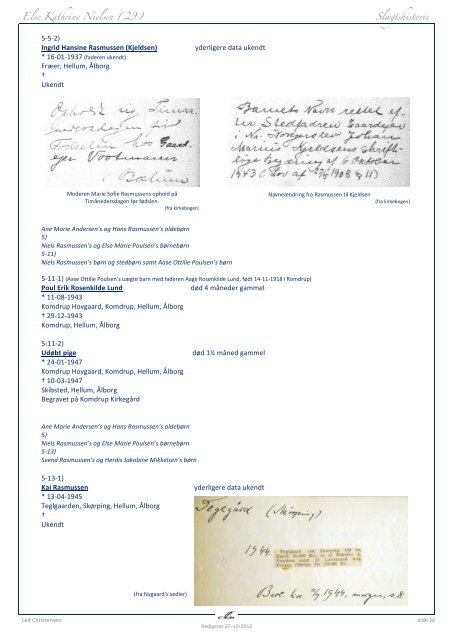 Else Kathrine Nielsen (29) Slægtshistorie
5-5-2)
Ingrid Hansine Rasmussen (Kjeldsen) yderligere data ukendt
* 16-01-1937 (faderen ukendt)
Fræer, Hellum, Ålborg
†
Ukendt
Opholdt sig Timaa-
nedersdagen før
Fødselen hos Gaard-
ejer Vootmann
i Bælum
Barnets Navn rettet ef-
ter Stedfadren Gaardejer
i Nr. Kongerslev Johan
Marius Kjeldsens skrift-
lige Begæring af 6 Oktober
1943 (Lov af 1908 § 11)
Moderen Marie Sofie Rasmussens ophold på
Timånedersdagen før fødslen.
(fra kirkebogen)
Navneændring fra Rasmussen til Kjeldsen
(fra kirkebogen)
Ane Marie Andersen's og Hans Rasmussen's oldebørn
5)
Niels Rasmussen's og Else Marie Poulsen's børnebørn
5-11)
Niels Rasmussen's børn og stedbørn samt Aase Ottilie Poulsen's børn
5-11-1) (Aase Ottilie Poulsen's uægte barn med faderen Aage Rosenkilde Lund, født 14-11-1918 i Romdrup)
Poul Erik Rosenkilde Lund død 4 måneder gammel
* 11-08-1943
Komdrup Hovgaard, Komdrup, Hellum, Ålborg
† 29-12-1943
Komdrup, Hellum, Ålborg
5-11-2)
Udøbt pige død 1½ måned gammel
* 24-01-1947
Komdrup Hovgaard, Komdrup, Hellum, Ålborg
† 10-03-1947
Skibsted, Hellum, Ålborg
Begravet på Komdrup Kirkegård
Ane Marie Andersen's og Hans Rasmussen's oldebørn
5)
Niels Rasmussen's og Else Marie Poulsen's børnebørn
5-13)
Svend Rasmussen's og Herdis Jakobine Mikkelsen's børn
5-13-1)
Kai Rasmussen yderligere data ukendt
* 13-04-1945
Teglgaarden, Skørping, Hellum, Ålborg
†
Ukendt
Teglgård (Skørping)
1944.
Teglgaard ved Skørping,
1944, morgen, s. 8
(fra Nygaard's sedler)
Leif Christensen side 28
Redigeret 27-10-2012